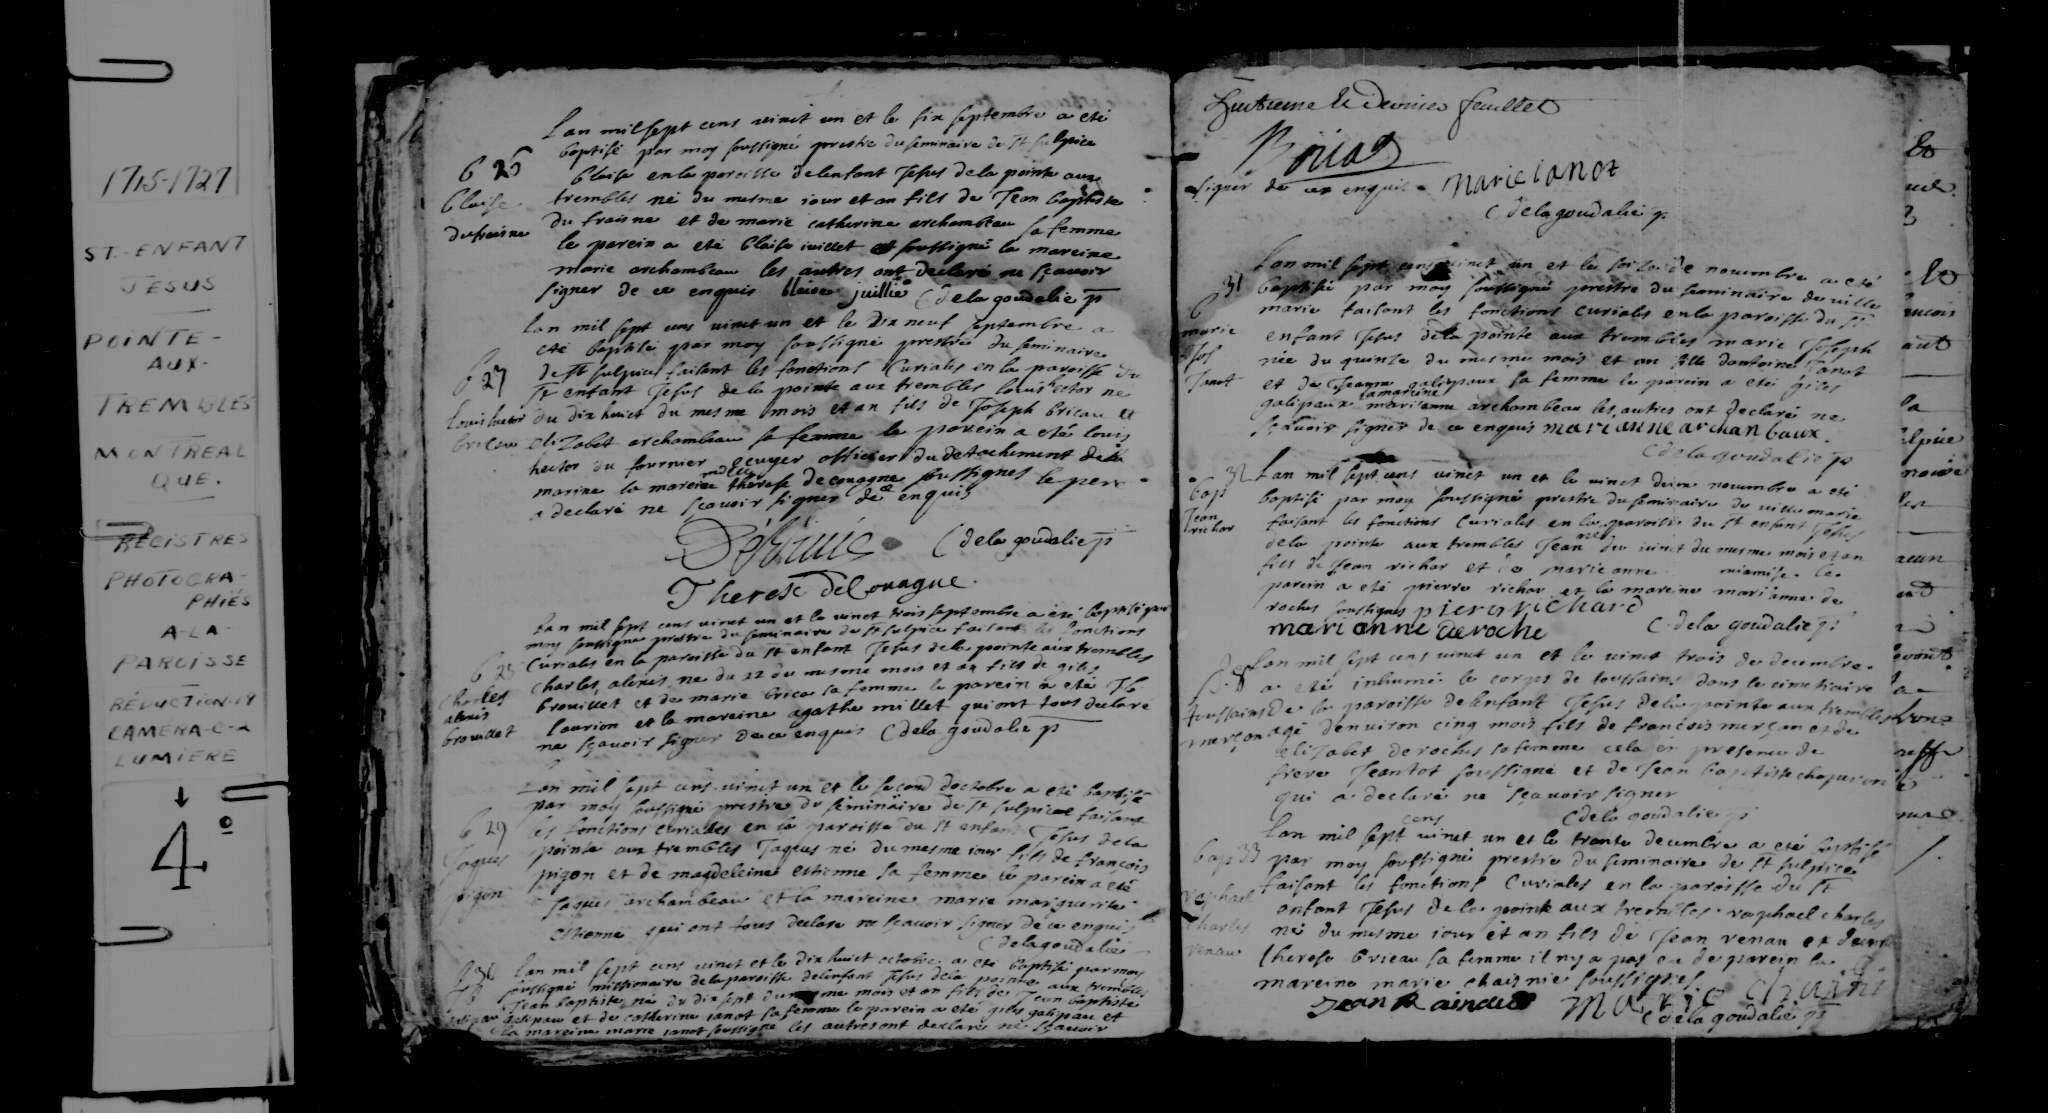 1715-1727
ST-ENFANT
JESUS
POINTE-
AUX-
TREMBLES
MONTREAL
QUE.
REGISTRES
PHOTOGRA-
PHIÉS
A-LA-
PAROISSE
RÉDUCTION-14
CAMERA-C-2
LUMIERE
4º
Lan mil sept cens vinct un et le six septembre a eté
baptisé par moy soussigné prestre du seminaire de st sulpice
b 26
blaise en la paroisse delenfant Jesus de la pointe aux
blaise
trembles né du mesme iour et an fils de Jean baptiste
dufraisne
du fraisne et de marie catherine archambeau sa femme
le parein a eté blaise iuillet soussigné la mareine
marie archambeau les autres ont declaré ne sçavoir
signer de ce enquis blaise juillie C de la goudalie p
Lan mil sept cens vinct un et le dix neuf septembre a
eté baptisé par moy soussigné prestre du seminaire
de st sulpice faisant les fonctions curiales en la paroisse du
b 27
st enfant Jesus de la pointe aux trembles louis ector né
louis hector
du dix huict du mesme mois et an fils de Joseph bricau et
bricau
elizabet archambeau sa femme le parein a eté louis
hector du fournier ecuyer officier du detachement de la
marine la mareine thérese de couagne soussignes le pere
a declaré ne sçavoir signer de ce enquis
C de la goudalie p
Therese de Couagne
Lan mil sept cens vinct un et le vinct trois septembre a eté baptisé par
moy soussigné prestre du seminaire de st sulpice faisant les fonctions
curiales en la paroisse du st enfant Jesus de la pointe aux trembles
b 28
charles alexis né du 22 du mesme mois et an fils de giles
charles
alexis
brouillet et de marie brico sa femme le parein a eté
brouillet
laurion et la mareine agathe millet qui ont tous declaré
ne sçavoir signer de ce enquis C de la goudalie p
Lan mil sept cens vinct un et le second doctobre a eté baptisé
par moy soussigné prestre du seminaire de st sulpice faisant
b 29
les fonctions curiales en la paroisse du st enfant Jesus de la
Jaques
pointe aux trembles Jaques né du mesme iour fils de françois
pizon
pizon et de magdeleine estienne sa femme le parein a eté
Jaques archambeau et la mareine marie marguerite
estienne qui ont tous declaré ne sçavoir signer de ce enquis
C de la goudalie
b 30
Lan mil sept cens vinct et le dix huict octobre a eté baptisé par moy
soussigné missionaire de la paroisse delenfant Jesus de la pointe aux trembles
Jean baptiste né du dix sept du mesme mois et an fils de Jean baptiste
galipau et de catherine ianot sa femme le parein a eté giles galipau et
la mareine marie ianot soussigné les autres ont declaré ne sçavoir
huitieme et dernier feuillet
signer de ce enquis marie ianot
C de la goudalie p.
Lan mil sept cens vinct un et le seize de novembre a eté
b 31
baptisé par moy soussigné prestre du seminaire de ville
marie
marie faisant les fonctions curiales en la paroisse du st
Jos
enfant Jesus de la pointe aux trembles marie Joseph
Janot
née du quinze du mesme mois et an fille dantoine Janot
et de Jeanne galipaux sa femme le parein a eté giles
galipaux la mareine marianne archambeau les autres ont declaré ne
sçavoir signer de ce enquis marianne archanbaux
C de la goudalie p
32
Lan mil sept cens vinct un et le vinct deux novembre a eté
bap
baptisé par moy soussigné prestre du seminaire de ville marie
Jean
richar
faisant les fonctions curiales en la paroisse du st enfant Jesus
de la pointe aux trembles Jean né du vinct du mesme mois et an
fils de Jean richar et de marieanne miamise le
parein a eté pierre richar et la mareine marianne de
roches soussignes piere richard
marianne deroche C de la goudalie p
Lan mil sept cens vinct un et le vinct trois de decembre
a eté inhumé le corps de toussains dans le cimetiaire
toussains
de la paroisse delenfant Jesus de la pointe aux trembles
merçon
agé denviron cinq mois fils de françois merçon et de
elizabet deroches sa femme cela en presence de
frere Jeantot soussigné et de Jean baptiste chaperon
qui a declaré ne sçavoir signer
C de la goudalie p
Lan mil sept cens vinct un et le trante decembre a eté baptisé
bap 33
par moy soussigné prestre du seminaire de st sulpice
faisant les fonctions curiales en la paroisse du st
raphael
enfant Jesus de la pointe aux trembles raphael charles
charles
né du mesme iour et an fils de Jean renau et de
renau
therese bricau sa femme il ny a pas eu de parein la
mareine marie chaisnie soussignes
Jean Rainaud Marie chaini
C de la goudalie p